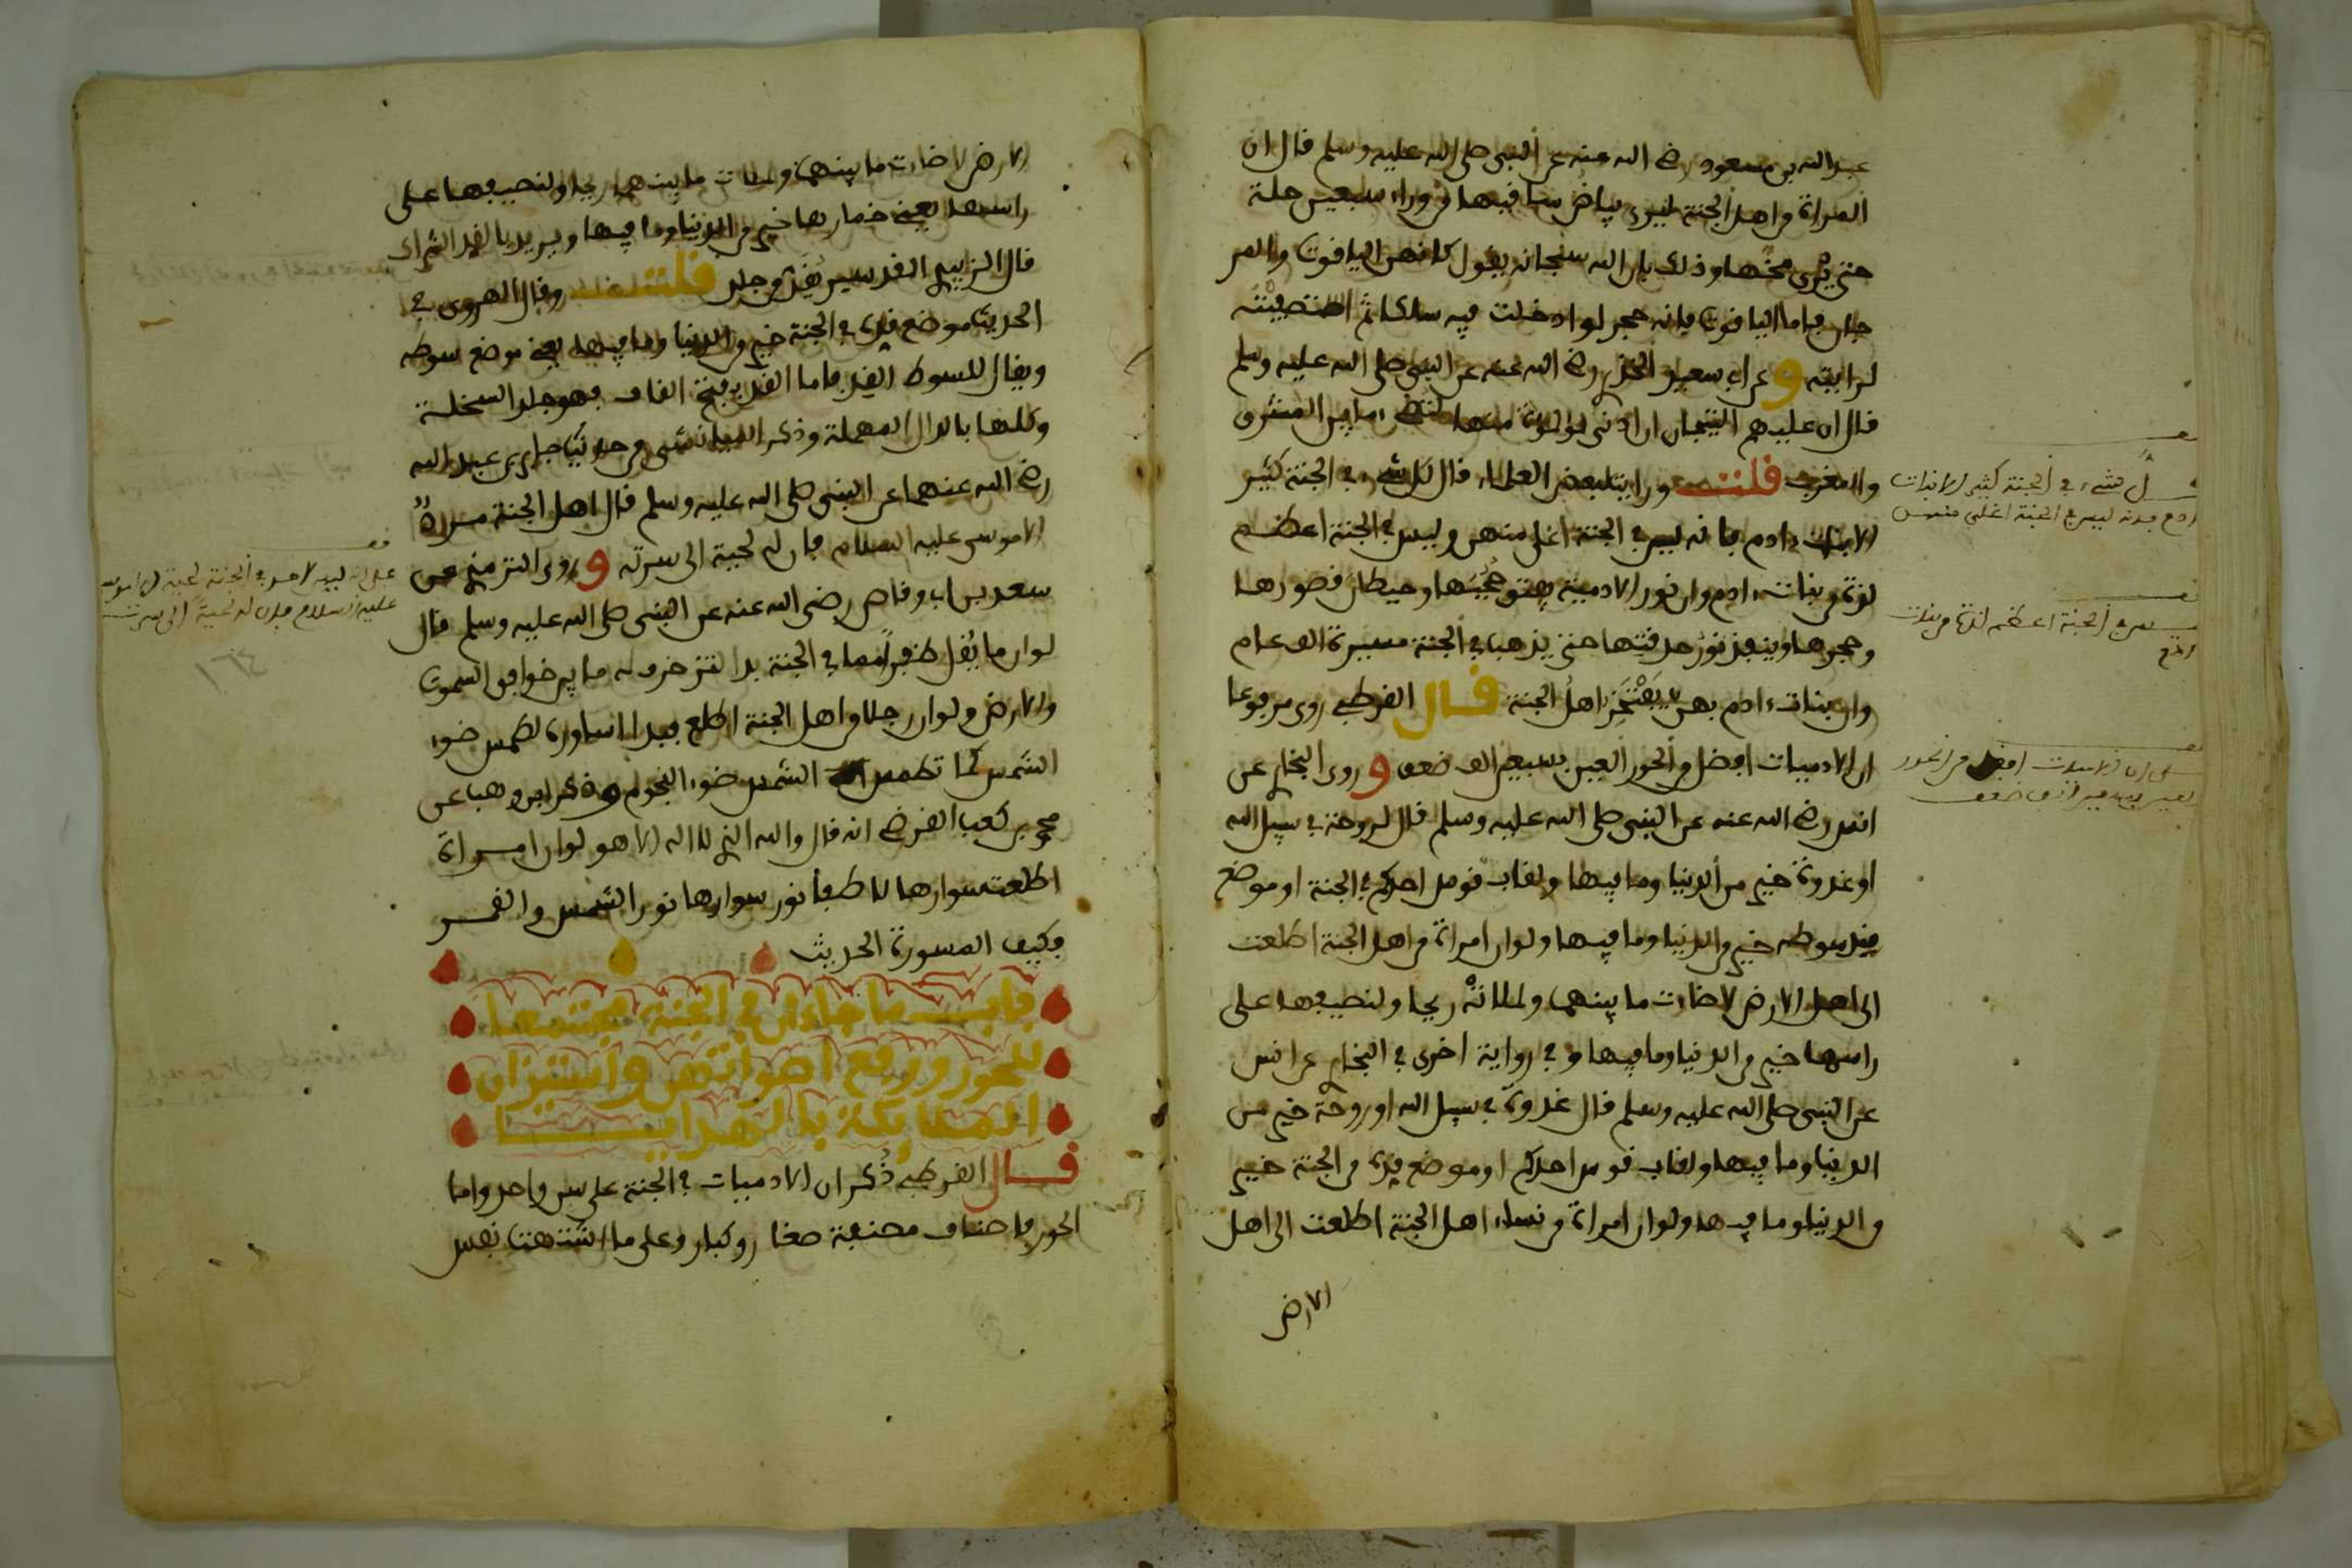 عبد الله بن مسعود رضي الله عنه عن النبي صلى الله عليه وسلم قال ان
المراة من اهل الجنة ليرى بياض ساقيها من وراء سبعين حلة
حتى يرى مخها وذلك بان الله سبحانه يقول كانهن الياقوت والمر
جان فاما الياقوت فانه حجر لو ادخلت فيه سلكا ثم استصفيته
لرايته وعن ابي سعيد الخدري رضي الله عنه عن النبي صلى الله عليه وسلم
قال ان عليهم التيجان ان ادنى لؤلؤة منها لتضيء ما بين المشرق
والمغرب قلت ورايت لبعض العلماء قال كل شيء في الجنة كثير
الا بنات ءادم فانه ليس في الجنة اغلى منهن وليس في الجنة اعظم
لذة من بنات ءادم وان نور الادمية يهتو حجبها وحيطان قصورها
وحجرها وينفذ نور حدقتها حتى يذهب في الجنة مسيرة الف عام
وان بنات ءادم بهن يفتخر اهل الجنة قال القرطبي روي مرفوعا
ان الادميات افضل من الحور العين بسبعين الف ضعف وروى البخاري عن
انس رضي الله عنه عن النبي صلى الله عليه وسلم قال لروحة في سبيل الله
او غدوة خير من الدنيا وما فيها ولقاب قوس احدكم في الجنة او موضع
قيد سوطه خير من الدنيا وما فيها ولو ان امراة من اهل الجنة اطلعت
الى اهل الارض لاضاءت ما بينهما ولملاته ريحا ولنصيفها على
راسها خير من الدنيا وما فيها وفي رواية اخرى في البخاري عن انس
عن النبي صلى الله عليه وسلم قال غدوة في سبيل الله او روحة خير من
الدنيا وما فيها ولقاب قوس احدكم او موضع قده من الجنة خير
من الدنيا وما فيها ولو ان امراة من نساء اهل الجنة اطلعت الى اهل
الارض
كل شيء في الجنة كثير الا بنات
ءادم فانه ليس في الجنة اغلى منهن
ليس في الجنة اعظم لذة من بنات
ءادم
على ان الادميات افضل من الحور
العين بسبعين الف ضعف
الارض لاضاءت ما بينهما ولملات ما بينهما ريحا ولنصيفها على
راسها يعني خمارها خير من الدنيا وما فيها ويريد بالقد الشراك
قال الزبيدي القد سير يقد من جلد قلت وقال الهروي في
الحديث موضع قده في الجنة خير من الدنيا وما فيها يعني موضع سوطه
ويقال للسوط القد فاما القد بفتح القاف فهو جلد السخلة
وكلها بالدال المهملة وذكر من حديث جابر بن عبد الله
رضي الله عنهما عن النبي صلى الله عليه وسلم قال اهل الجنة مرد
الا موسى عليه السلام فان له لحية الى سرته وروى الترمذي عن
سعد بن ابي وقاص رضي الله عنه عن النبي صلى الله عليه وسلم قال
لو ان ما يقل ظفر مما في الجنة بدا لتزخرف له ما بين خوافق السموت
والارض ولو ان رجلا من اهل الجنة اطلع فبدا اساوره لطمس ضوء
الشمس كما تطمس الشمس ضوء النجوم وذكر ابن وهب عن
محمد بن كعب القرظي انه قال والله الذي لا اله الا هو لو ان امراة
اطلعت سوارها لاطفا نور سوارها نور الشمس والقمر
فكيف المسورة الحديث
باب ما جاء ان في الجنة مجتمعا
للحور ورفع اصواتهن واستيزان
الملايكة بالهدايا
قال القرطبي ذكر ان الادميات في الجنة على سن واحد واما
الحور فاصناف مصنفة صغار وكبار وعلى ما اشتهت نفس
على انه ليس لاحد في الجنة لحية الا موسى
عليه السلام فان له لحية الى سرته